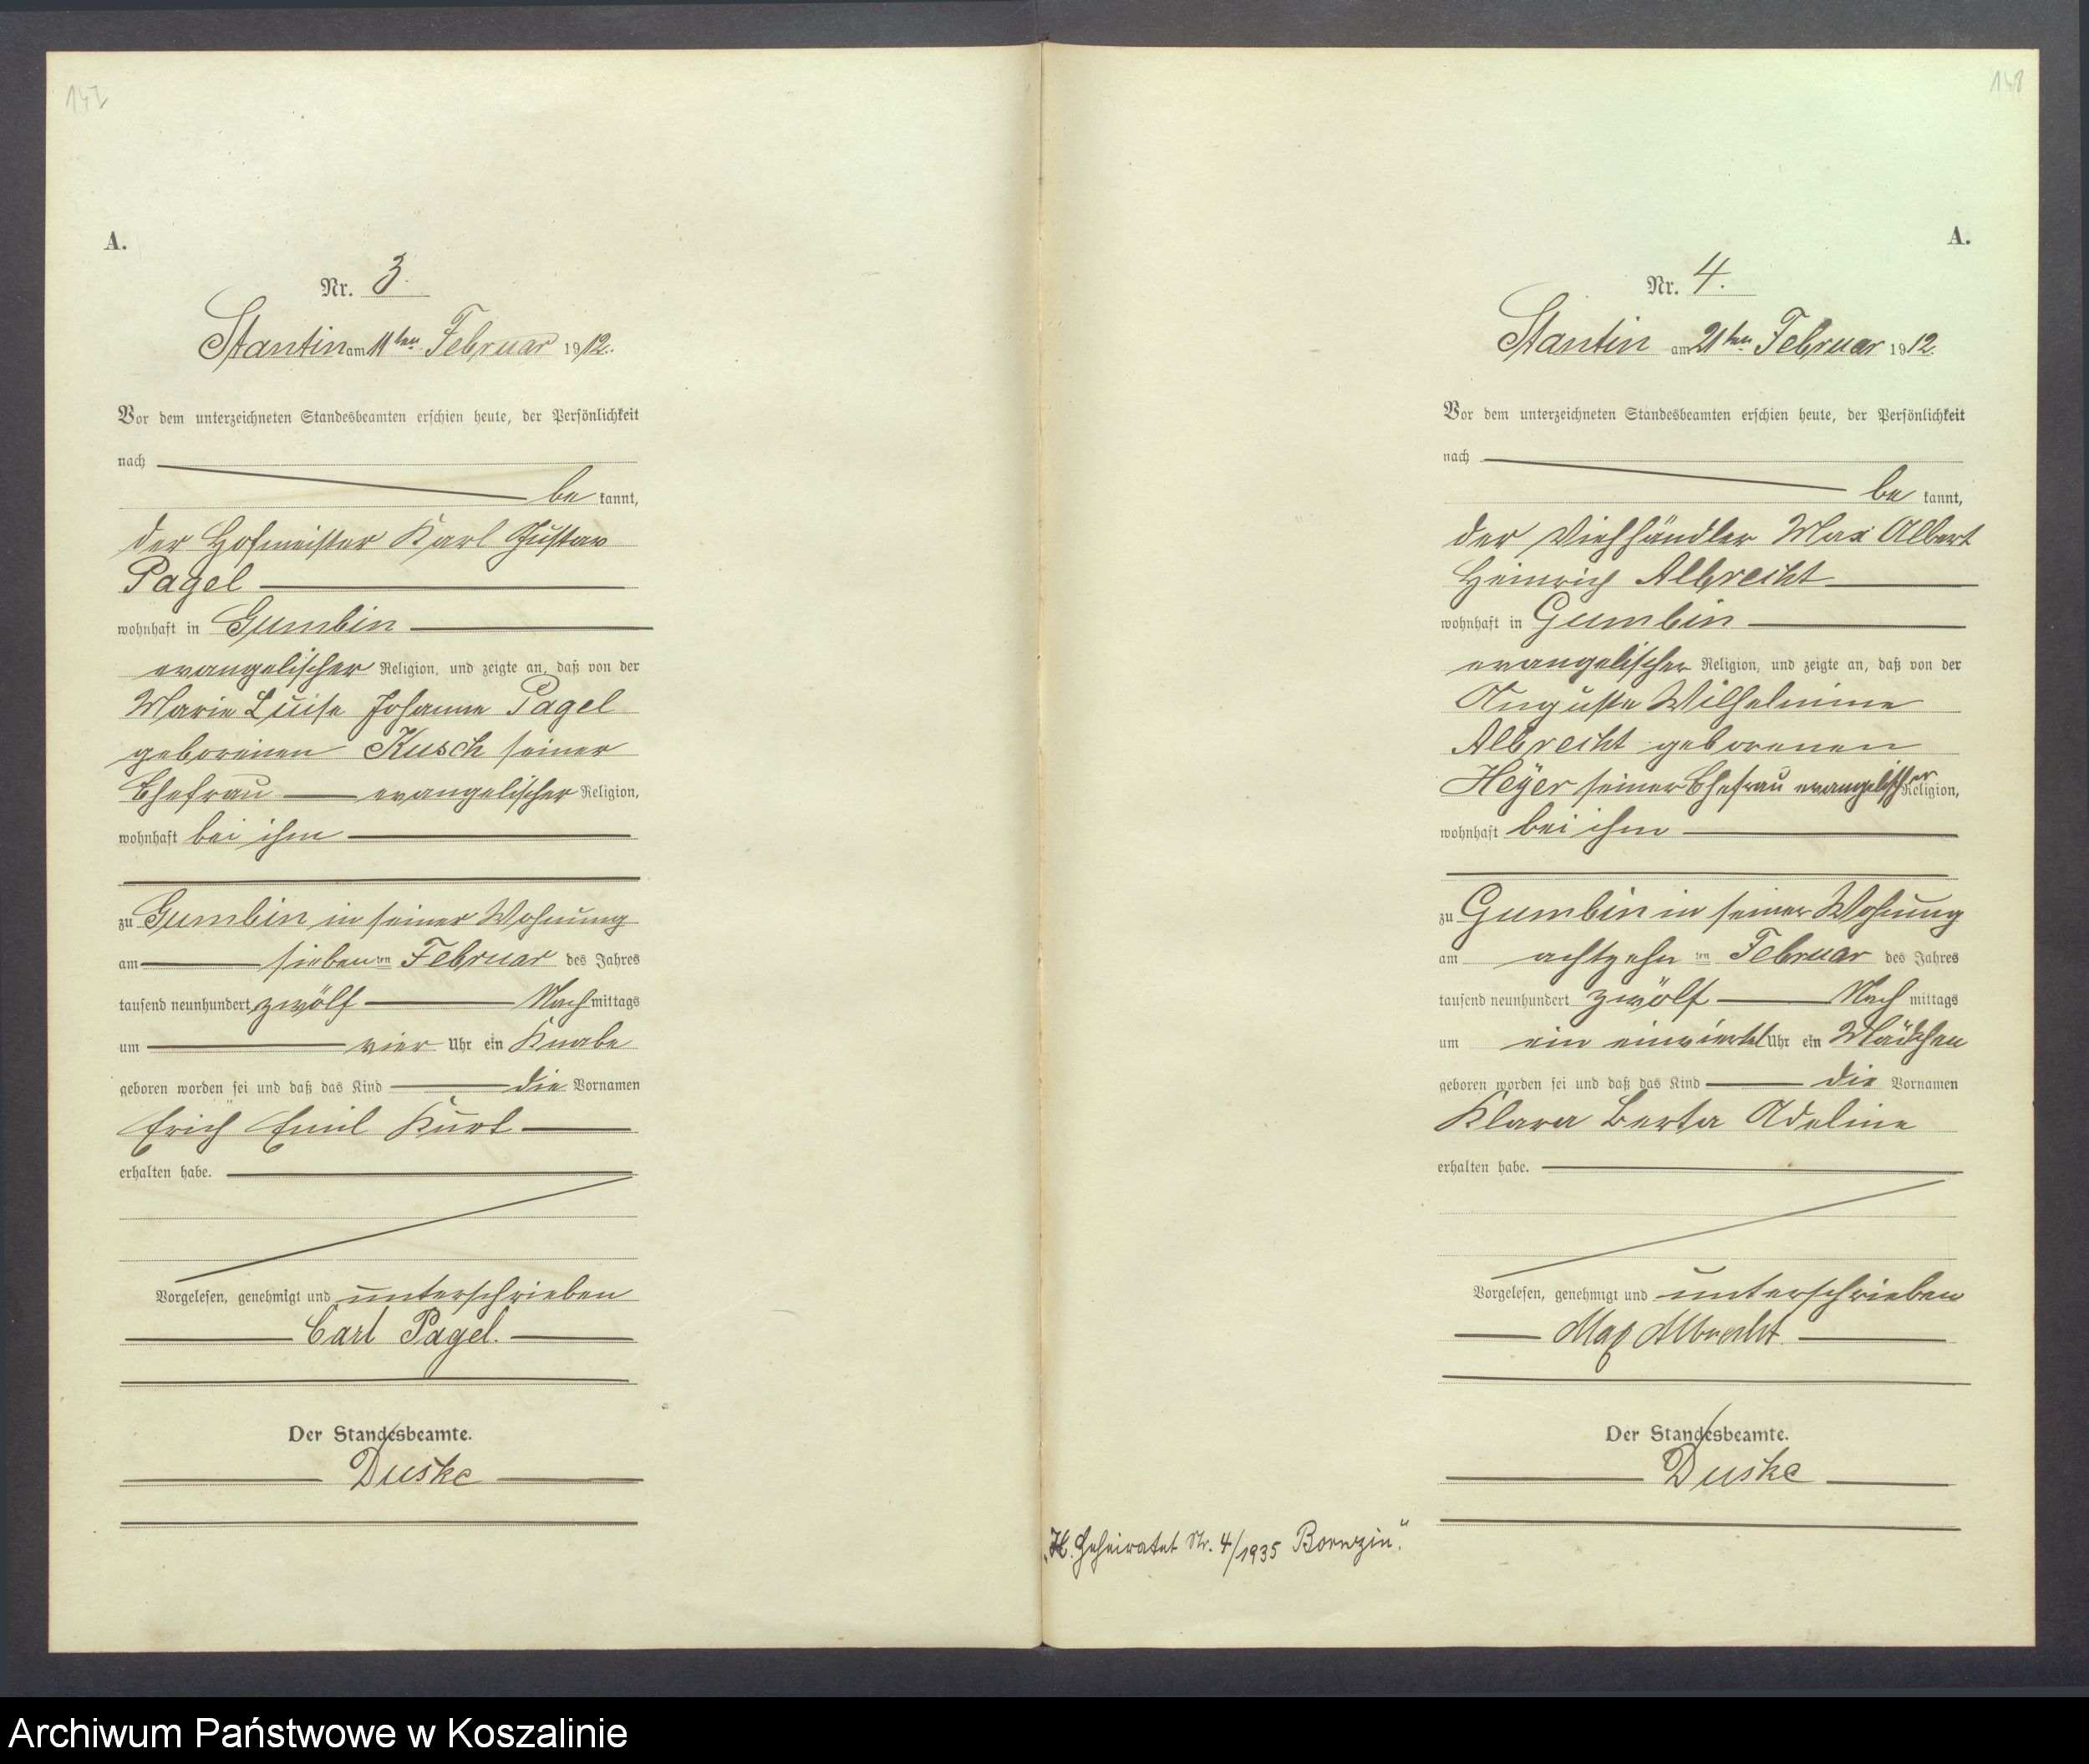 147
A.
Nr. 3.
Stantin am 11ten Februar 1912.
Vor dem unterzeichneten Standesbeamten erschien heute, der Persönlichkeit
nach
be kannt,
der Hofmeister Karl Gustav
Pagel
wohnhaft in Gumbin
evangelischer Religion, und zeigte an, daß von der
Marie Luise Johanne Pagel
geborenen Kusch seiner
Ehefrau evangelischer Religion,
wohnhaft bei ihm
zu Gumbin in seiner Wohnung
am siebenten Februar des Jahres
tausend neunhundert zwölf Nachmittags
um vier Uhr ein Knabe
geboren worden sei und daß das Kind die Vornamen
Erich Emil Kurt
erhalten habe.
Vorgelesen, genehmigt und unterschrieben
Carl Pagel.
Der Standesbeamte.
Duske
148
A.
Nr. 4.
Stantin am 21ten Februar 1912.
Vor dem unterzeichneten Standesbeamten erschien heute, der Persönlichkeit
nach
be kannt,
der Viehhändler Max Albert
Heinrich Albrecht
wohnhaft in Gumbin
evangelischer Religion, und zeigte an, daß von der
Auguste Wilhelmine
Albrecht geborenen
Heÿer seiner Ehefrau evangelischer Religion,
wohnhaft bei ihm
zu Gumbin in seiner Wohnung
am achtzehn ten Februar des Jahres
tausend neunhundert zwölf Nach mittags
um ein einviertel Uhr ein Mädchen
geboren worden sei und daß das Kind die Vornamen
Klara Berta Adeline
erhalten habe.
Vorgelesen, genehmigt und unterschrieben
Max Albrecht
Der Standesbeamte.
Duske
Geheiratet Nr. 4/1935 Bornzin."
Archiwum Państwowe w Koszalinie